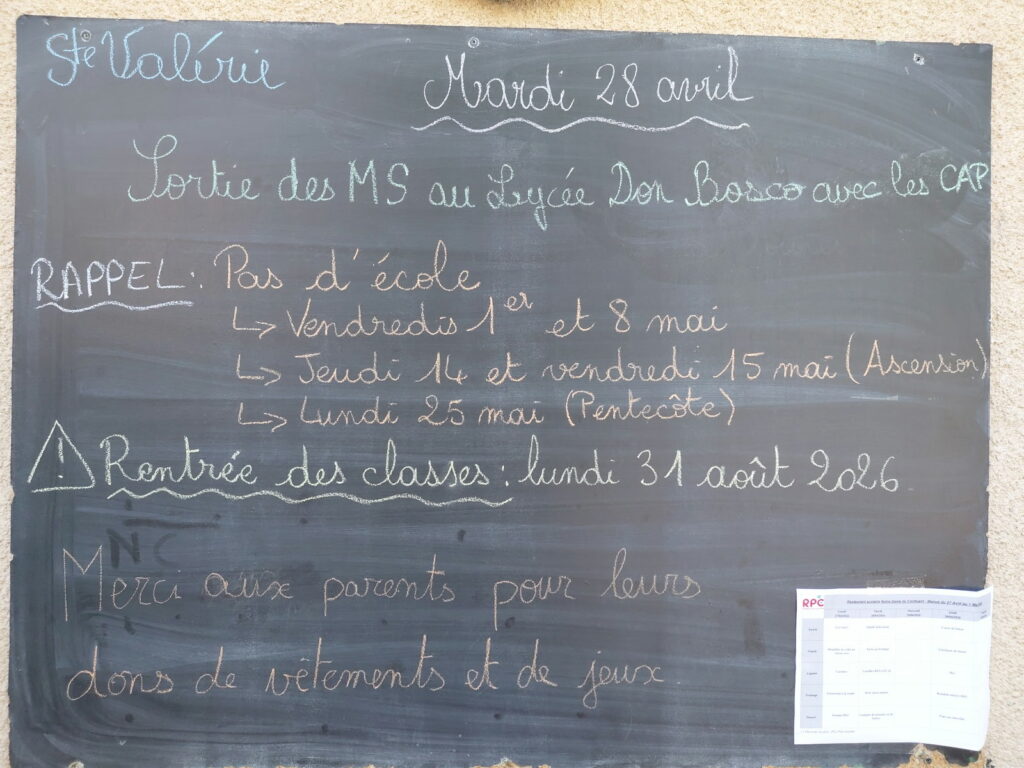 Ste Valérie
Mardi 28 avril
Sortie des MS au Lycée Don Bosco avec les CAP
RAPPEL : Pas d'école
↳ Vendredis 1er et 8 mai
↳ Jeudi 14 et vendredi 15 mai (Ascension)
↳ Lundi 25 mai (Pentecôte)
! Rentrée des classes : lundi 31 août 2026
NC
Merci aux parents pour leurs
dons de vêtements et de jeux
RPC